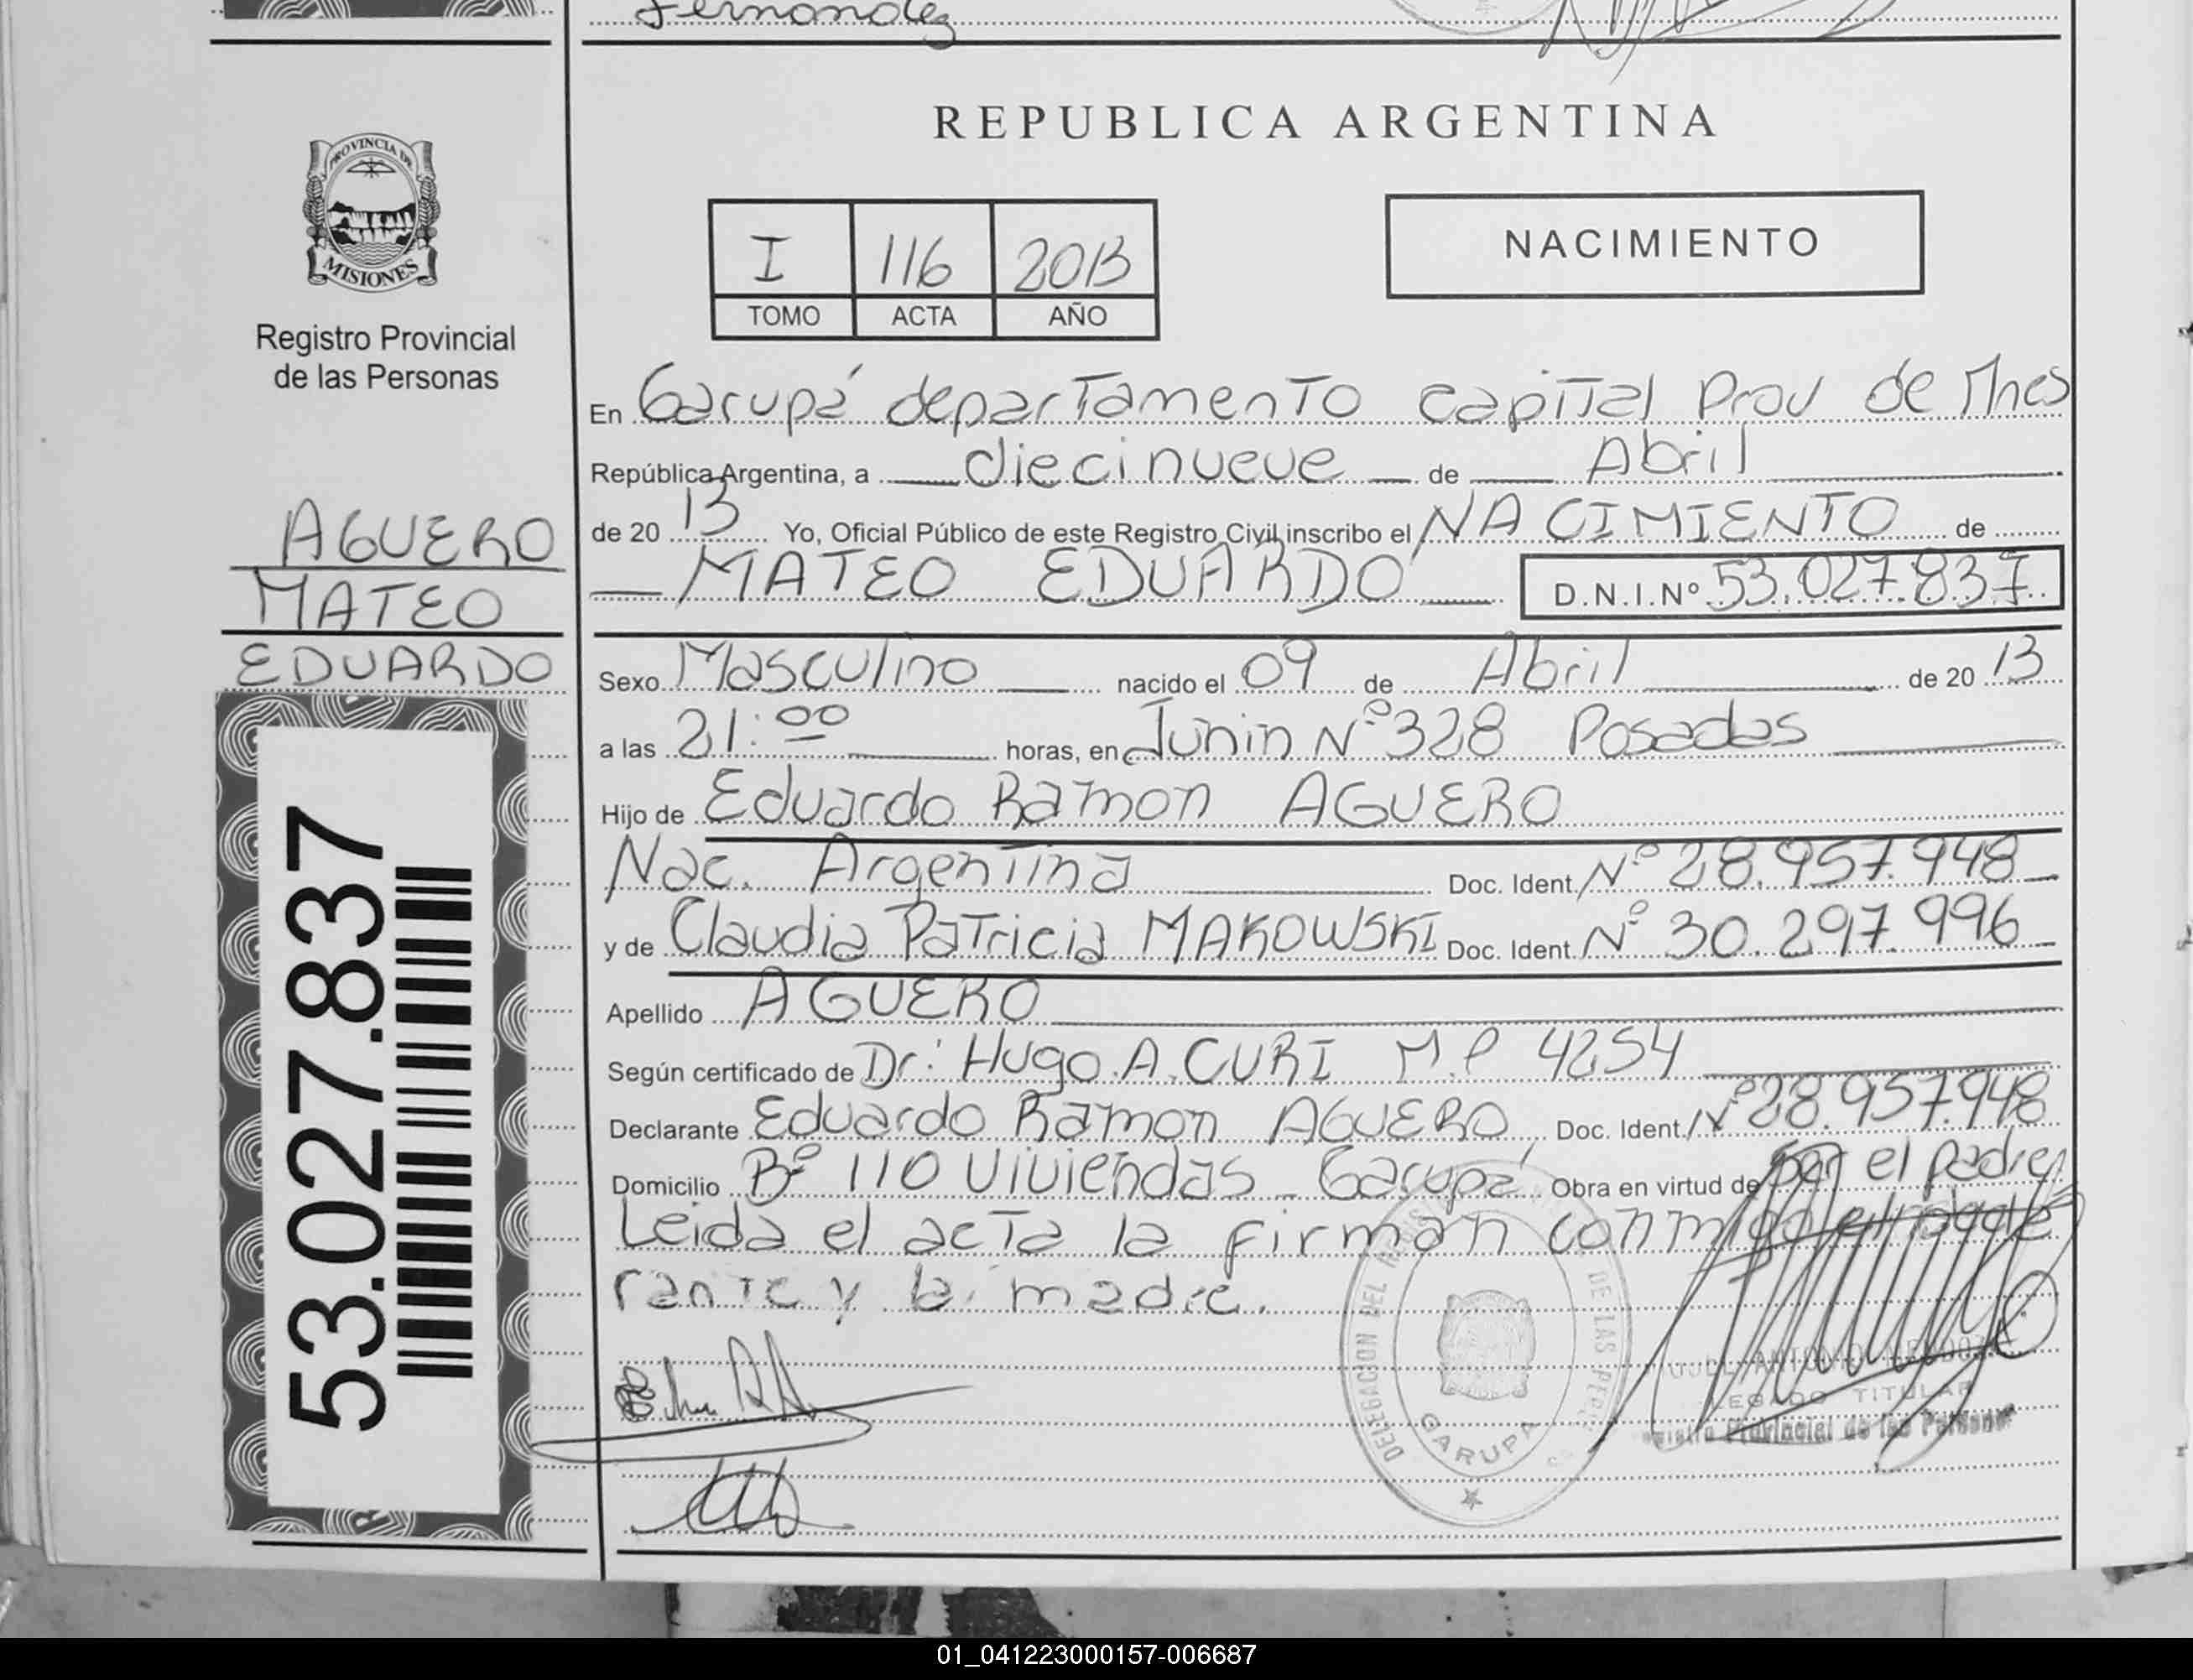 Fernandez
REPUBLICA ARGENTINA
PROVINCIA DE
MISIONES
Registro Provincial
de las Personas
I 116 2013
TOMO ACTA AÑO
NACIMIENTO
En Garupá departamento capital Prov de Mnes
República Argentina, a diecinueve de Abril
de 20 13 Yo, Oficial Público de este Registro Civil inscribo el NACIMIENTO de
MATEO EDUARDO D.N.I.Nº 53.027.837
AGUERO
MATEO
EDUARDO
53.027.837
Sexo Masculino nacido el 09 de Abril de 20 13
a las 21:00 horas, en Junin Nº 328 Posadas
Hijo de Eduardo Ramon AGUERO
Nac. Argentina Doc. Ident. Nº 28.957.948
y de Claudia Patricia MAKOWSKI Doc. Ident. Nº 30.297.996
Apellido AGUERO
Según certificado de Dr: Hugo A. CURI M.P 4254
Declarante Eduardo Ramon AGUERO Doc. Ident. Nº 28.957.948
Domicilio Bº 110 Viviendas Garupá Obra en virtud de ser el padre
Leida el acta la firman conmigo el
rante y la madre.
DELEGACION DEL DE LAS
GARUPA
ANTONIO
TITULAR
Provincial de las Personas
01_041223000157-006687